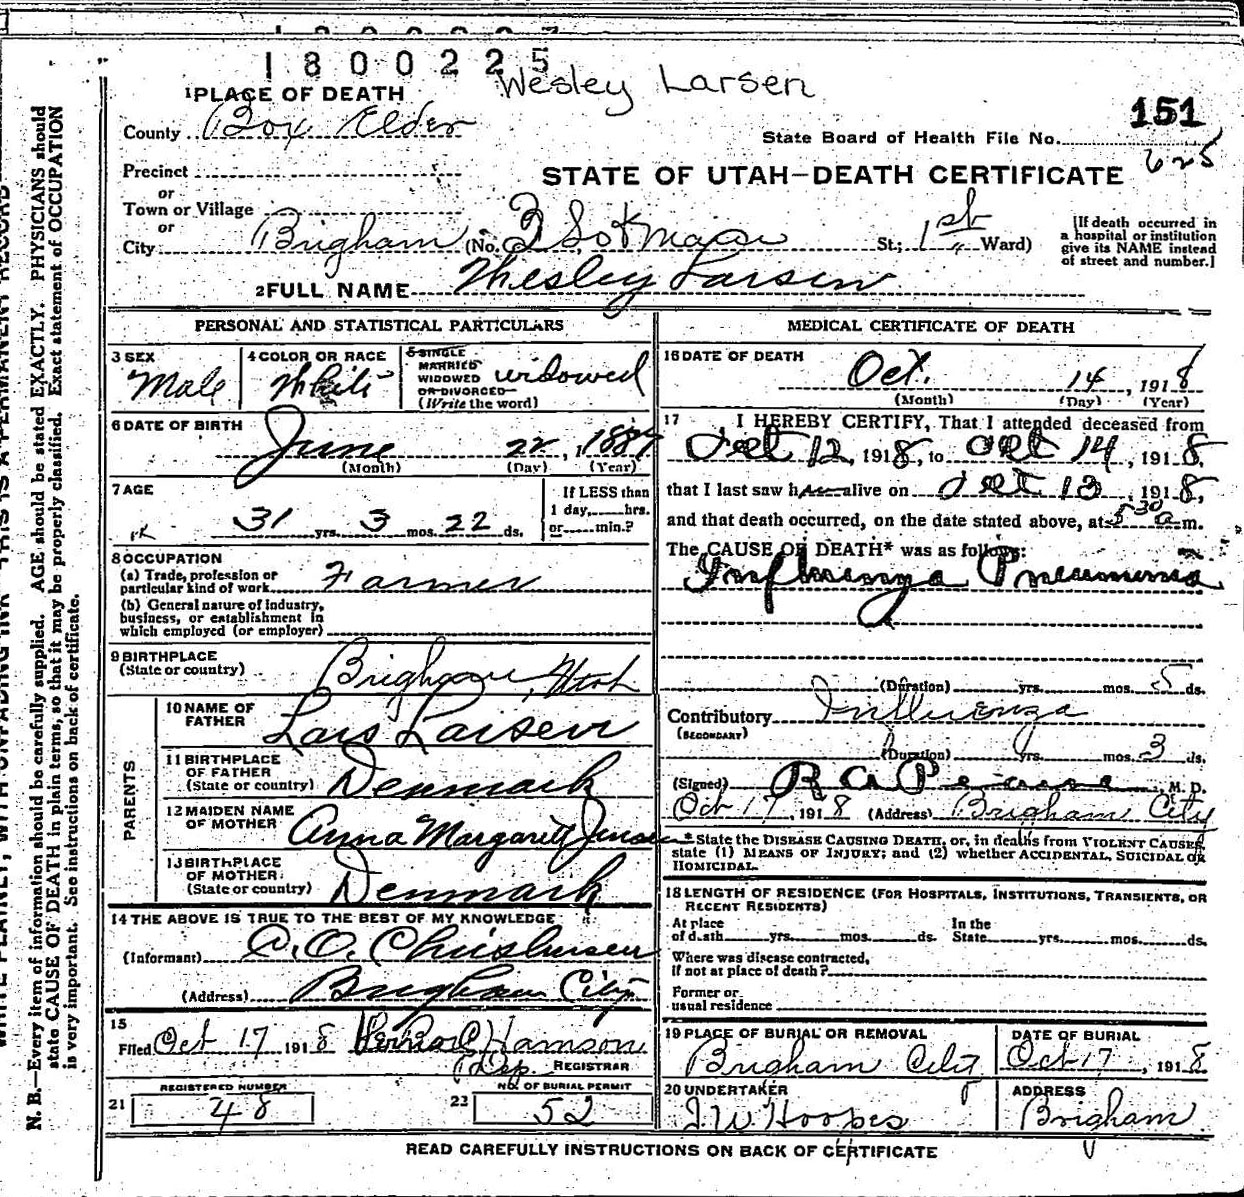 1800225
Wesley Larsen
1 PLACE OF DEATH
151
County Box Elder
State Board of Health File No.
625
Precinct
STATE OF UTAH—DEATH CERTIFICATE
or
Town or Village
or
City Brigham (No. 3 So Main St.; 1st Ward)
[If death occurred in
a hospital or institution
give its NAME instead
of street and number.]
2 FULL NAME Wesley Larsen
PERSONAL AND STATISTICAL PARTICULARS
3 SEX
Male
4 COLOR OR RACE
White
5 SINGLE
MARRIED
WIDOWED
OR DIVORCED
(Write the word)
widowed
6 DATE OF BIRTH
June 22, 1887
(Month) (Day) (Year)
7 AGE
31 yrs. 3 mos. 22 ds.
If LESS than
1 day, hrs.
or min.?
8 OCCUPATION
(a) Trade, profession or
particular kind of work Farmer
(b) General nature of industry,
business, or establishment in
which employed (or employer)
9 BIRTHPLACE
(State or country) Brigham, Utah
PARENTS
10 NAME OF
FATHER Lars Larsen
11 BIRTHPLACE
OF FATHER
(State or country) Denmark
12 MAIDEN NAME
OF MOTHER Anna Margarett Jensen
13 BIRTHPLACE
OF MOTHER
(State or country) Denmark
14 THE ABOVE IS TRUE TO THE BEST OF MY KNOWLEDGE
(Informant) C. O. Christensen
(Address) Brigham City
15
Filed Oct 17 1918 Hamson
Dep. REGISTRAR
REGISTERED NUMBER
21 48
NO. OF BURIAL PERMIT
22 52
MEDICAL CERTIFICATE OF DEATH
16 DATE OF DEATH
Oct. 14, 1918
(Month) (Day) (Year)
17 I HEREBY CERTIFY, That I attended deceased from
Oct 12, 1918, to Oct 14, 1918,
that I last saw him alive on Oct 13, 1918,
and that death occurred, on the date stated above, at 5 30 a m.
The CAUSE OF DEATH* was as follows:
Influenza Pneumonia
(Duration) yrs. mos. 5 ds.
Contributory Influenza
(SECONDARY)
(Duration) yrs. mos. 3 ds.
(Signed) R A Pearse, M. D.
Oct 17, 1918 (Address) Brigham City
* State the DISEASE CAUSING DEATH, or, in deaths from VIOLENT CAUSES,
state (1) MEANS OF INJURY; and (2) whether ACCIDENTAL, SUICIDAL OR
HOMICIDAL.
18 LENGTH OF RESIDENCE (FOR HOSPITALS, INSTITUTIONS, TRANSIENTS, OR
RECENT RESIDENTS)
At place
of death yrs. mos. ds.
In the
State yrs. mos. ds.
Where was disease contracted,
if not at place of death?
Former or
usual residence
19 PLACE OF BURIAL OR REMOVAL
Brigham City
DATE OF BURIAL
Oct 17, 1918
20 UNDERTAKER
J. W. Hoopes
ADDRESS
Brigham
READ CAREFULLY INSTRUCTIONS ON BACK OF CERTIFICATE
N. B.—Every item of information should be carefully supplied. AGE should be stated EXACTLY. PHYSICIANS should
state CAUSE OF DEATH in plain terms, so that it may be properly classified. Exact statement of OCCUPATION
is very important. See instructions on back of certificate.